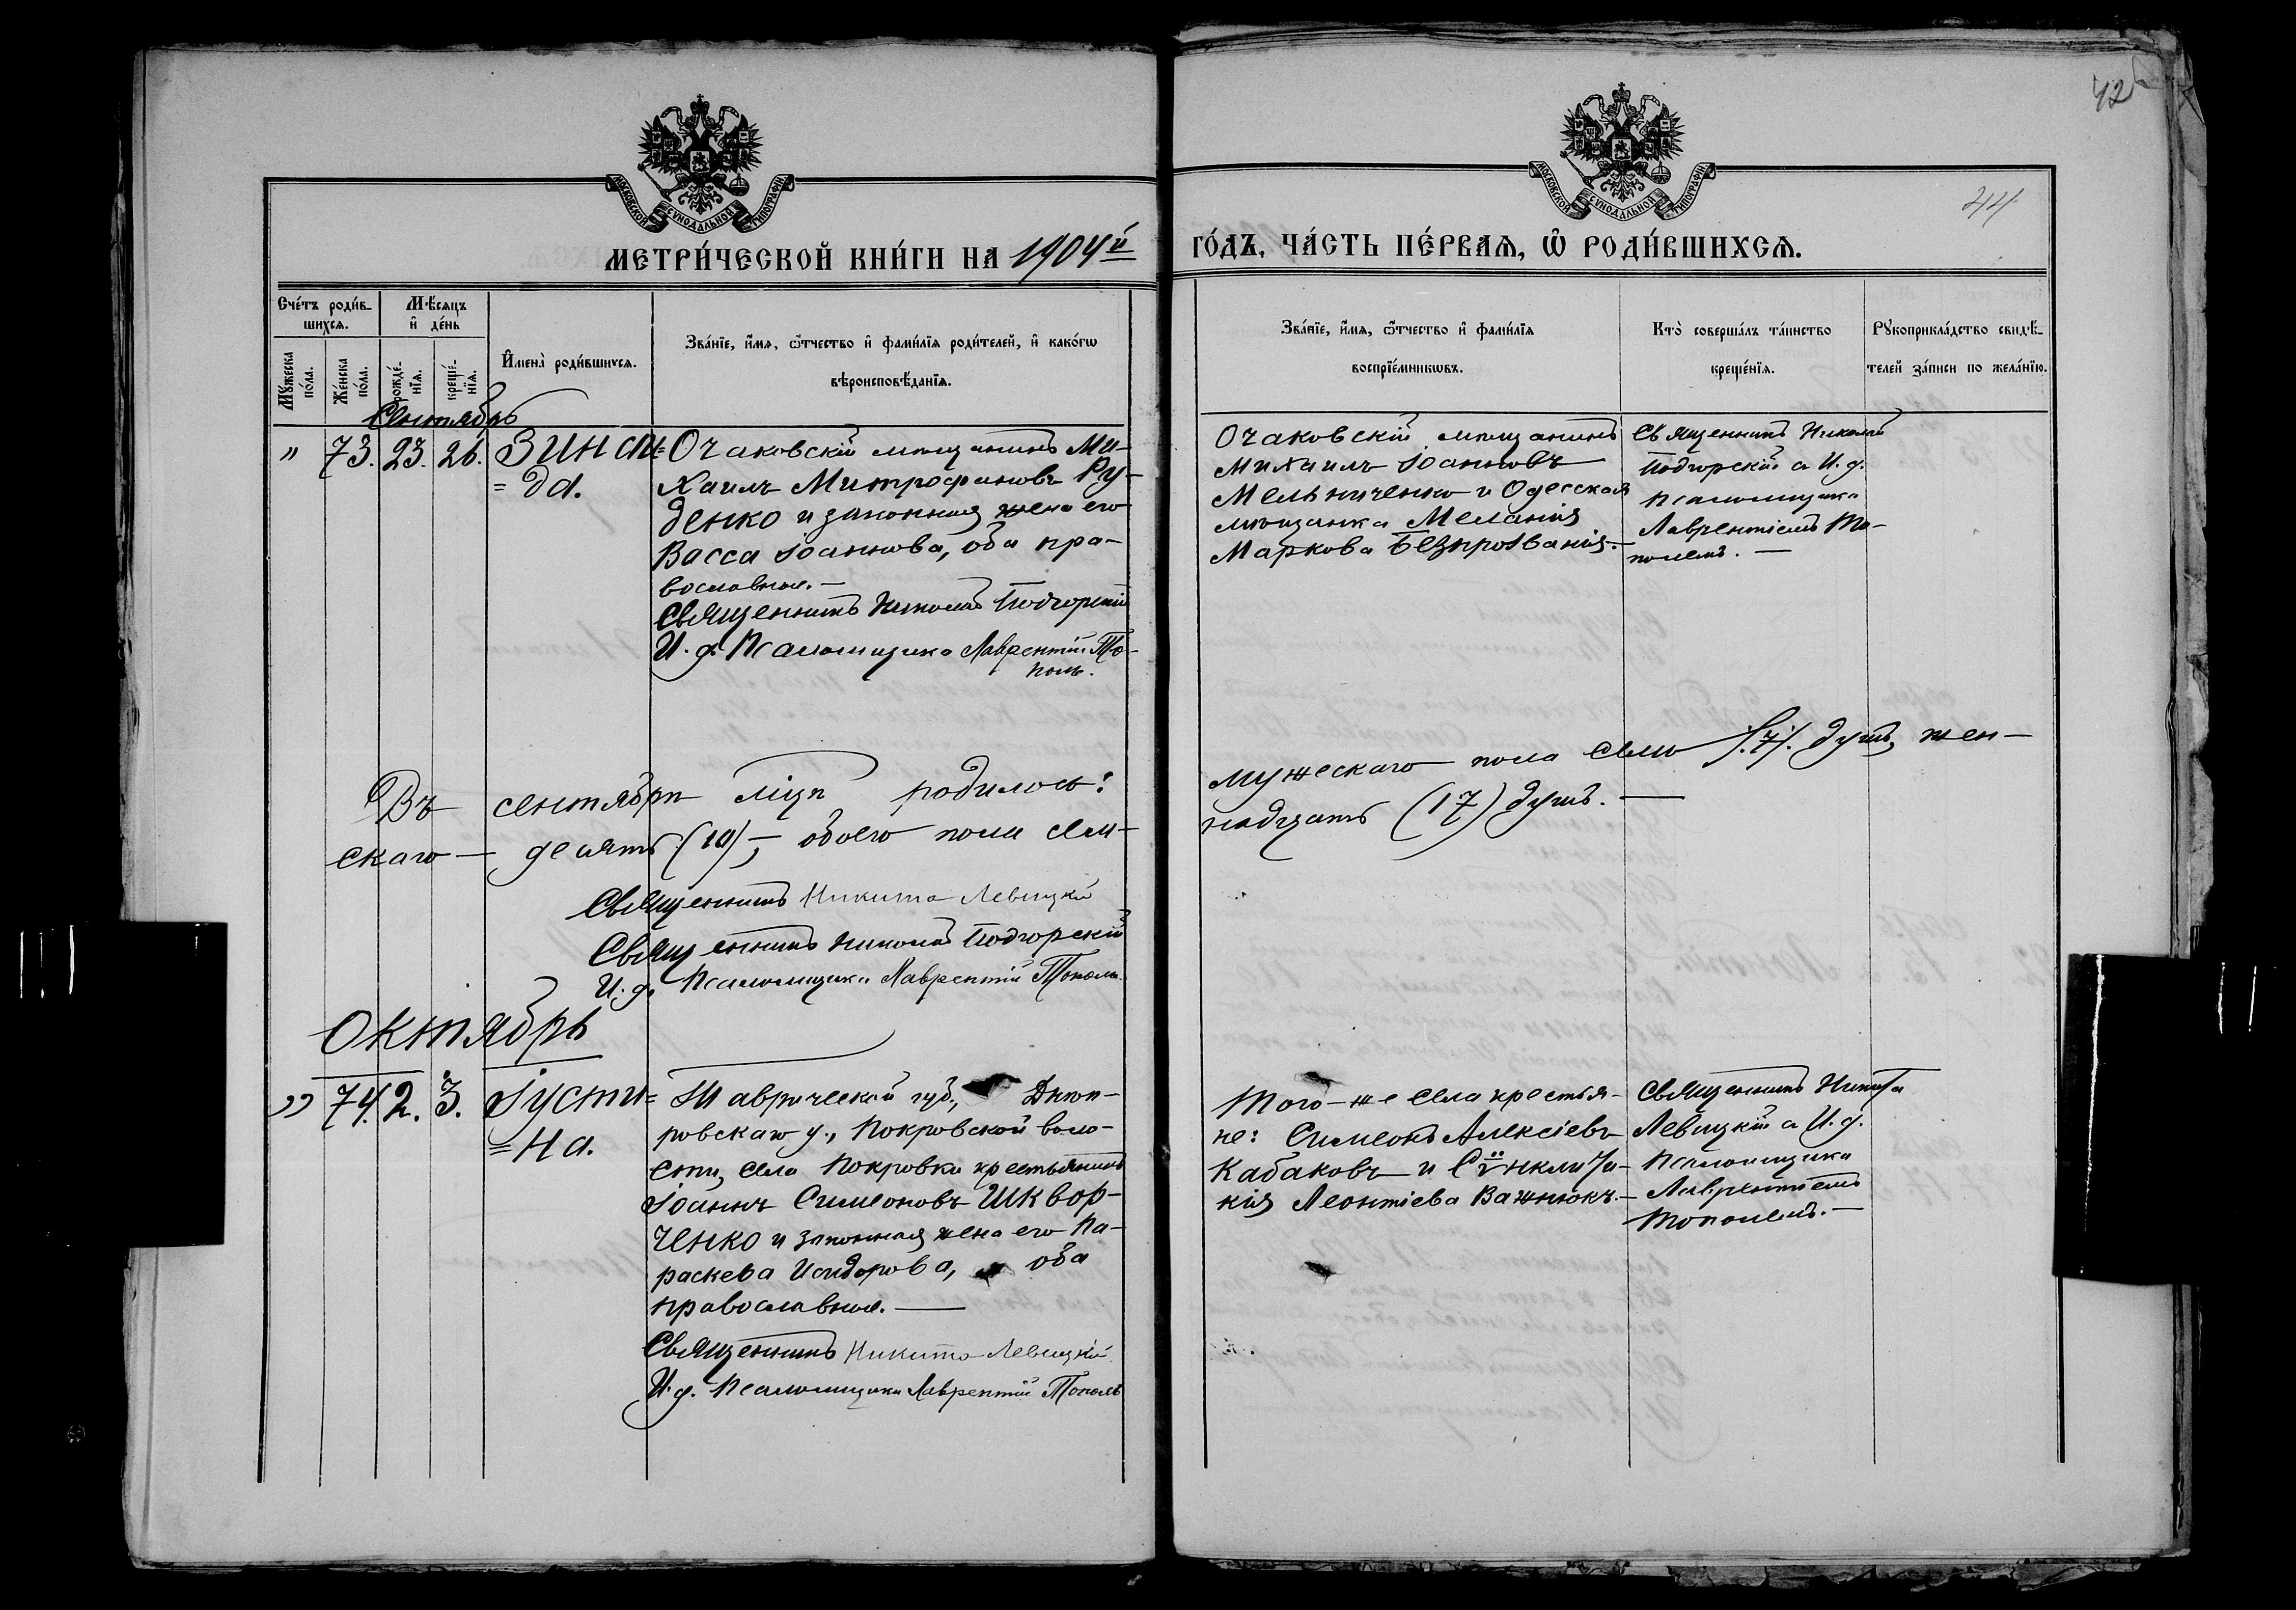 42
44
МОСКОВСКОЙ СѴНОДАЛЬНОЙ ТИПОГРАФІИ
МОСКОВСКОЙ СѴНОДАЛЬНОЙ ТИПОГРАФІИ
МЕТРИ́ЧЕСКОЙ КНИ́ГИ НА 1904й
ГО́ДЪ, ЧА́СТЬ ПЕ́РВАЯ, Ѿ РОДИ́ВШИХСЯ.
Сче́тъ роди́в-
шихся.
Мꙋжеска по́ла.
Же́нска по́ла.
Мѣ́сяцъ
и҆ де́нь
рожде́-
нїя.
креще́-
нїя.
И҆мена̀ роди́вшихся.
Зва́нїе, и҆́мя, ѻ҆́тчество и҆ фами́лїя роди́телей, и҆ како́гѡ
вѣроисповѣ́данїя.
Зва́нїе, и҆́мя, ѻ҆́тчество и҆ фами́лїя
воспрїе́мникѡвъ.
Кто̀ соверша́лъ та́инство
креще́нїя.
Рꙋкоприкла́дство свидѣ́-
телей за́писи по жела́нїю.
Сентябрь
" 73. 23. 26. Зинаи=
=да.
Очаковскій мѣщанинъ Ми-
хаилъ Митрофановъ Ру-
денко и законная жена его
Васса Іоаннова, оба пра-
вославные.—
Священникъ Николай Подгорскій
И. д. Псаломщика Лаврентій То-
поль.
Очаковскій мѣщанинъ
Михаилъ Іоанновъ
Мельниченко и Одесская
мѣщанка Меланія
Маркова Безпрозванія.—
Священникъ Николай
Подгорскій и И. д.
Псаломщика
Лаврентіемъ То-
полемъ.—
Въ сентябрѣ мцѣ родилось:
мужескаго пола семь (7) душъ, жен-
скаго — десять (10), обоего пола сем-
надцать (17) душъ.—
Священникъ Никита Левицкій
Священникъ Николай Подгорскій
И. д. Псаломщика Лаврентій Тополь.
Октябрь
" 74. 2. 3. Іусти=
=на.
Таврической губ., Днѣп-
ровскаго у., Покровской воло-
сти, села Покровки крестьянинъ
Іоаннъ Симеоновъ Шквор-
ченко и законная жена его Па-
раскева Исидорова, оба
православные.—
Священникъ Никита Левицкій
И. д. Псаломщика Лаврентій Тополь
Того-же села крестья-
не: Симеонъ Алексіевъ
Кабаковъ и Сѵнклити-
кія Леонтіева Важнюкъ.—
Священникъ Никита
Левицкій и И. д.
Псаломщика
Лаврентіемъ
Тополемъ.—